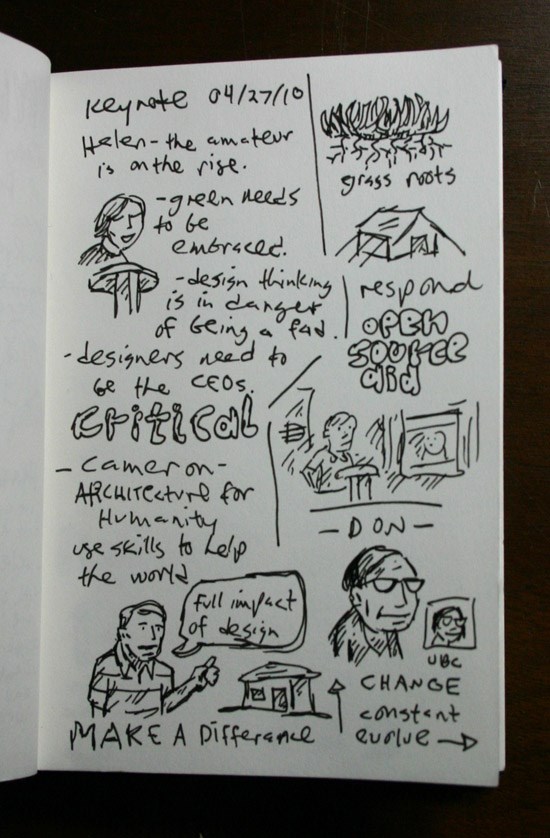 Keynote 04/27/10
Helen - the amateur
is on the rise.
- green needs
to be
embraced.
- design thinking
is in danger
of being a fad.
- designers need to
be the CEOs.
CRitical
- Cameron -
ARCHITecture for
Humanity
use skills to help
the world
full impact
of design
MAKE A Difference
grass roots
respond
OPEN
SOURCE
did
- DON -
UBC
CHANGE
constant
evolve →